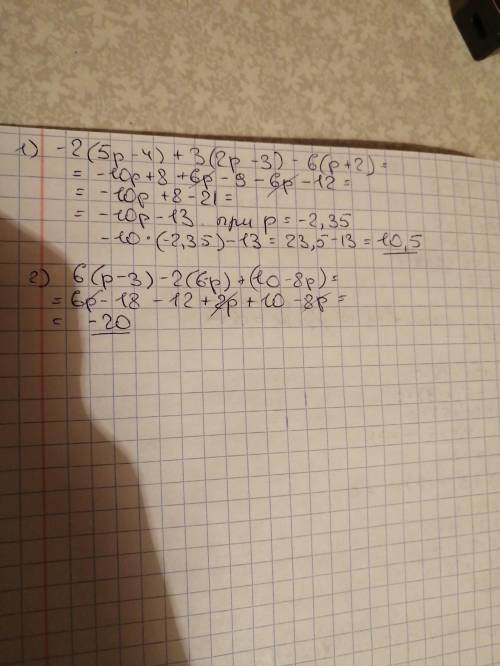 1) -2(5p-4) + 3(2p-3) - 6(p+2) =
= -10p+8 + 6p - 9 - 6p - 12 =
= -10p + 8 - 21 =
= -10p - 13 при p = -2,35
-10·(-2,35) - 13 = 23,5 - 13 = 10,5
2) 6(p-3) - 2(6p) + (10-8p) =
= 6p - 18 - 12 + 2p + 10 - 8p =
= -20